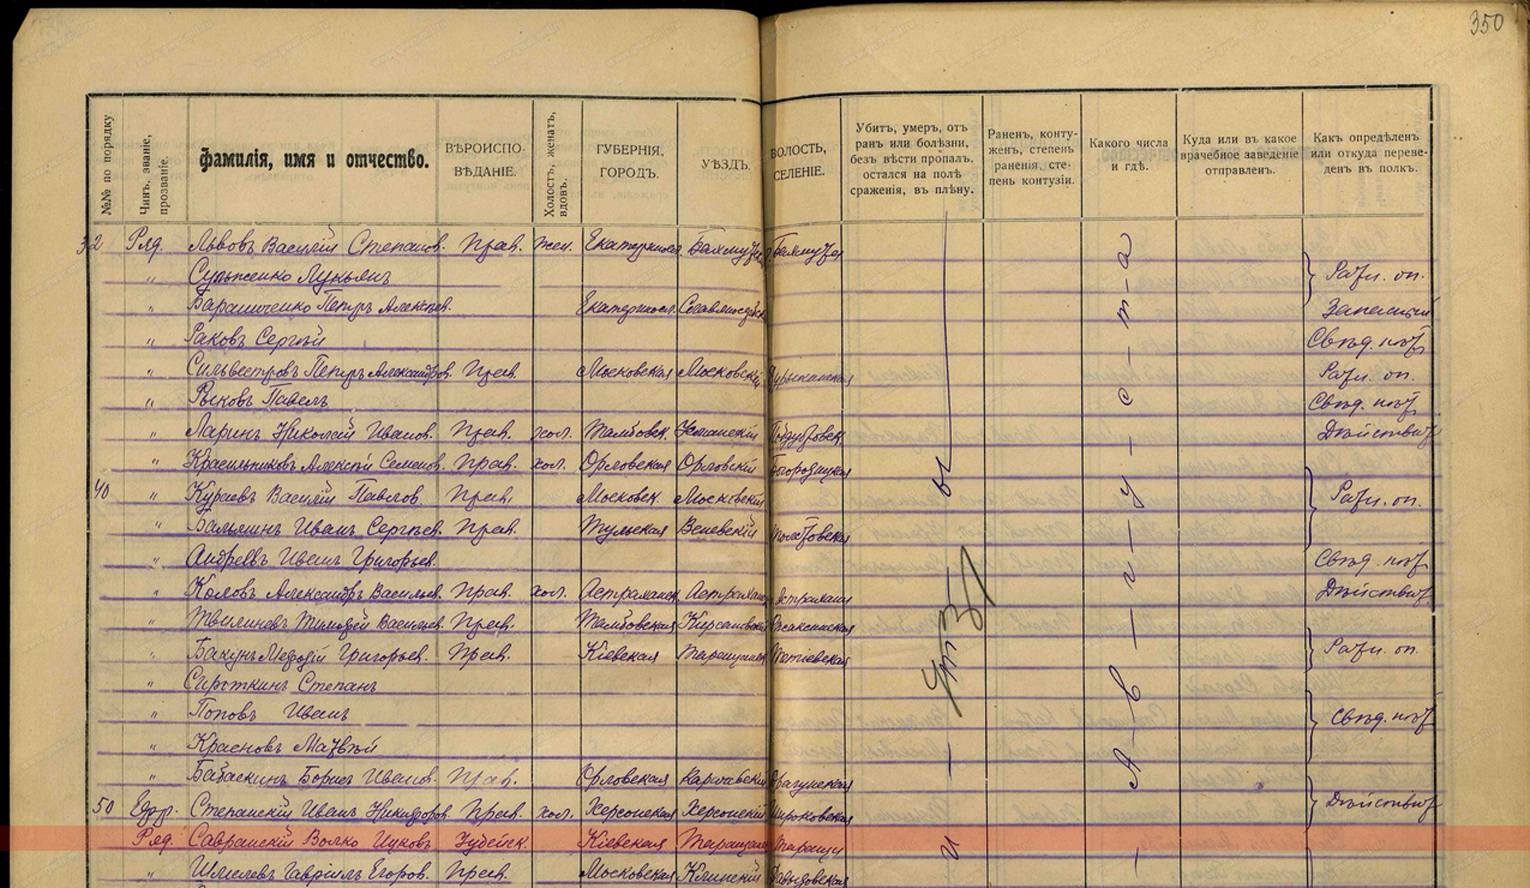 350
№№ по порядку
Чинъ, званіе, прозваніе.
Фамилія, имя и отчество.
ВѢРОИСПО-
ВѢДАНІЕ.
Холостъ, женатъ, вдовъ.
ГУБЕРНІЯ,
ГОРОДЪ.
УѢЗДЪ.
ВОЛОСТЬ,
СЕЛЕНІЕ.
Убитъ, умеръ, отъ
ранъ или болѣзни,
безъ вѣсти пропалъ,
остался на полѣ
сраженія, въ плѣну.
Раненъ, конту-
женъ, степень
раненія, сте-
пень контузіи.
Какого числа
и гдѣ.
Куда или въ какое
врачебное заведеніе
отправленъ.
Какъ опредѣленъ
или откуда переве-
денъ въ полкъ.
32 Ряд. Львовъ Василій Степанов. Прав. жен. Екатериносл. Бахмутск. Бахмутск
" Лукьянъ Ратн. оп.
" Петръ Алексѣев. Екатеринос. Славяносербск Запасный
" Раковъ Сергѣй Свѣд. нѣт
" Сильвестровъ Петръ Александров. Прав. Московская Московскій Ратн. оп.
" Рыковъ Павелъ Свѣд. нѣт
" Ларинъ Николай Иванов. Прав. хол. Тамбовск. Усманскій Дѣйствит
" Красильниковъ Алексѣй Семенов. Прав. хол. Орловская Орловскій Богородицкая
40 " Кураевъ Василій Павлов. Прав. Московск. Московскій Ратн. оп.
" Иванъ Сергѣев. Прав. Тульская Веневскій
" Андреевъ Иванъ Григорьев. Свѣд. нѣт
" Козловъ Александръ Васильев. Прав. хол. Астраханск. Астраханск Астрахани Дѣйствит
" Тимофей Васильев. Прав. Тамбовская Кирсановскій Ржаксинская
" Бакунъ Мефодій Григорьев. Прав. Кіевская Таращанск Тетіевская Ратн. оп
" Сироткинъ Степанъ
" Поповъ Иванъ Свѣд. нѣт
" Красновъ Матвѣй
" Бабаскинъ Борисъ Иванов. Прав. Орловская Карачевскій Драгунская
50 Ефр. Степанскій Иванъ Никифоров. Прав. хол. Херсонская Херсонскій Широковская Дѣйствит
Ряд. Савранскій Волко Ицков. Іудейск. Кіевская Таращанск Таращи
" Шмелевъ Гавріилъ Егоров. Прав. Московская Клинскій Давыдовская
А - в - г - у - с - т - а